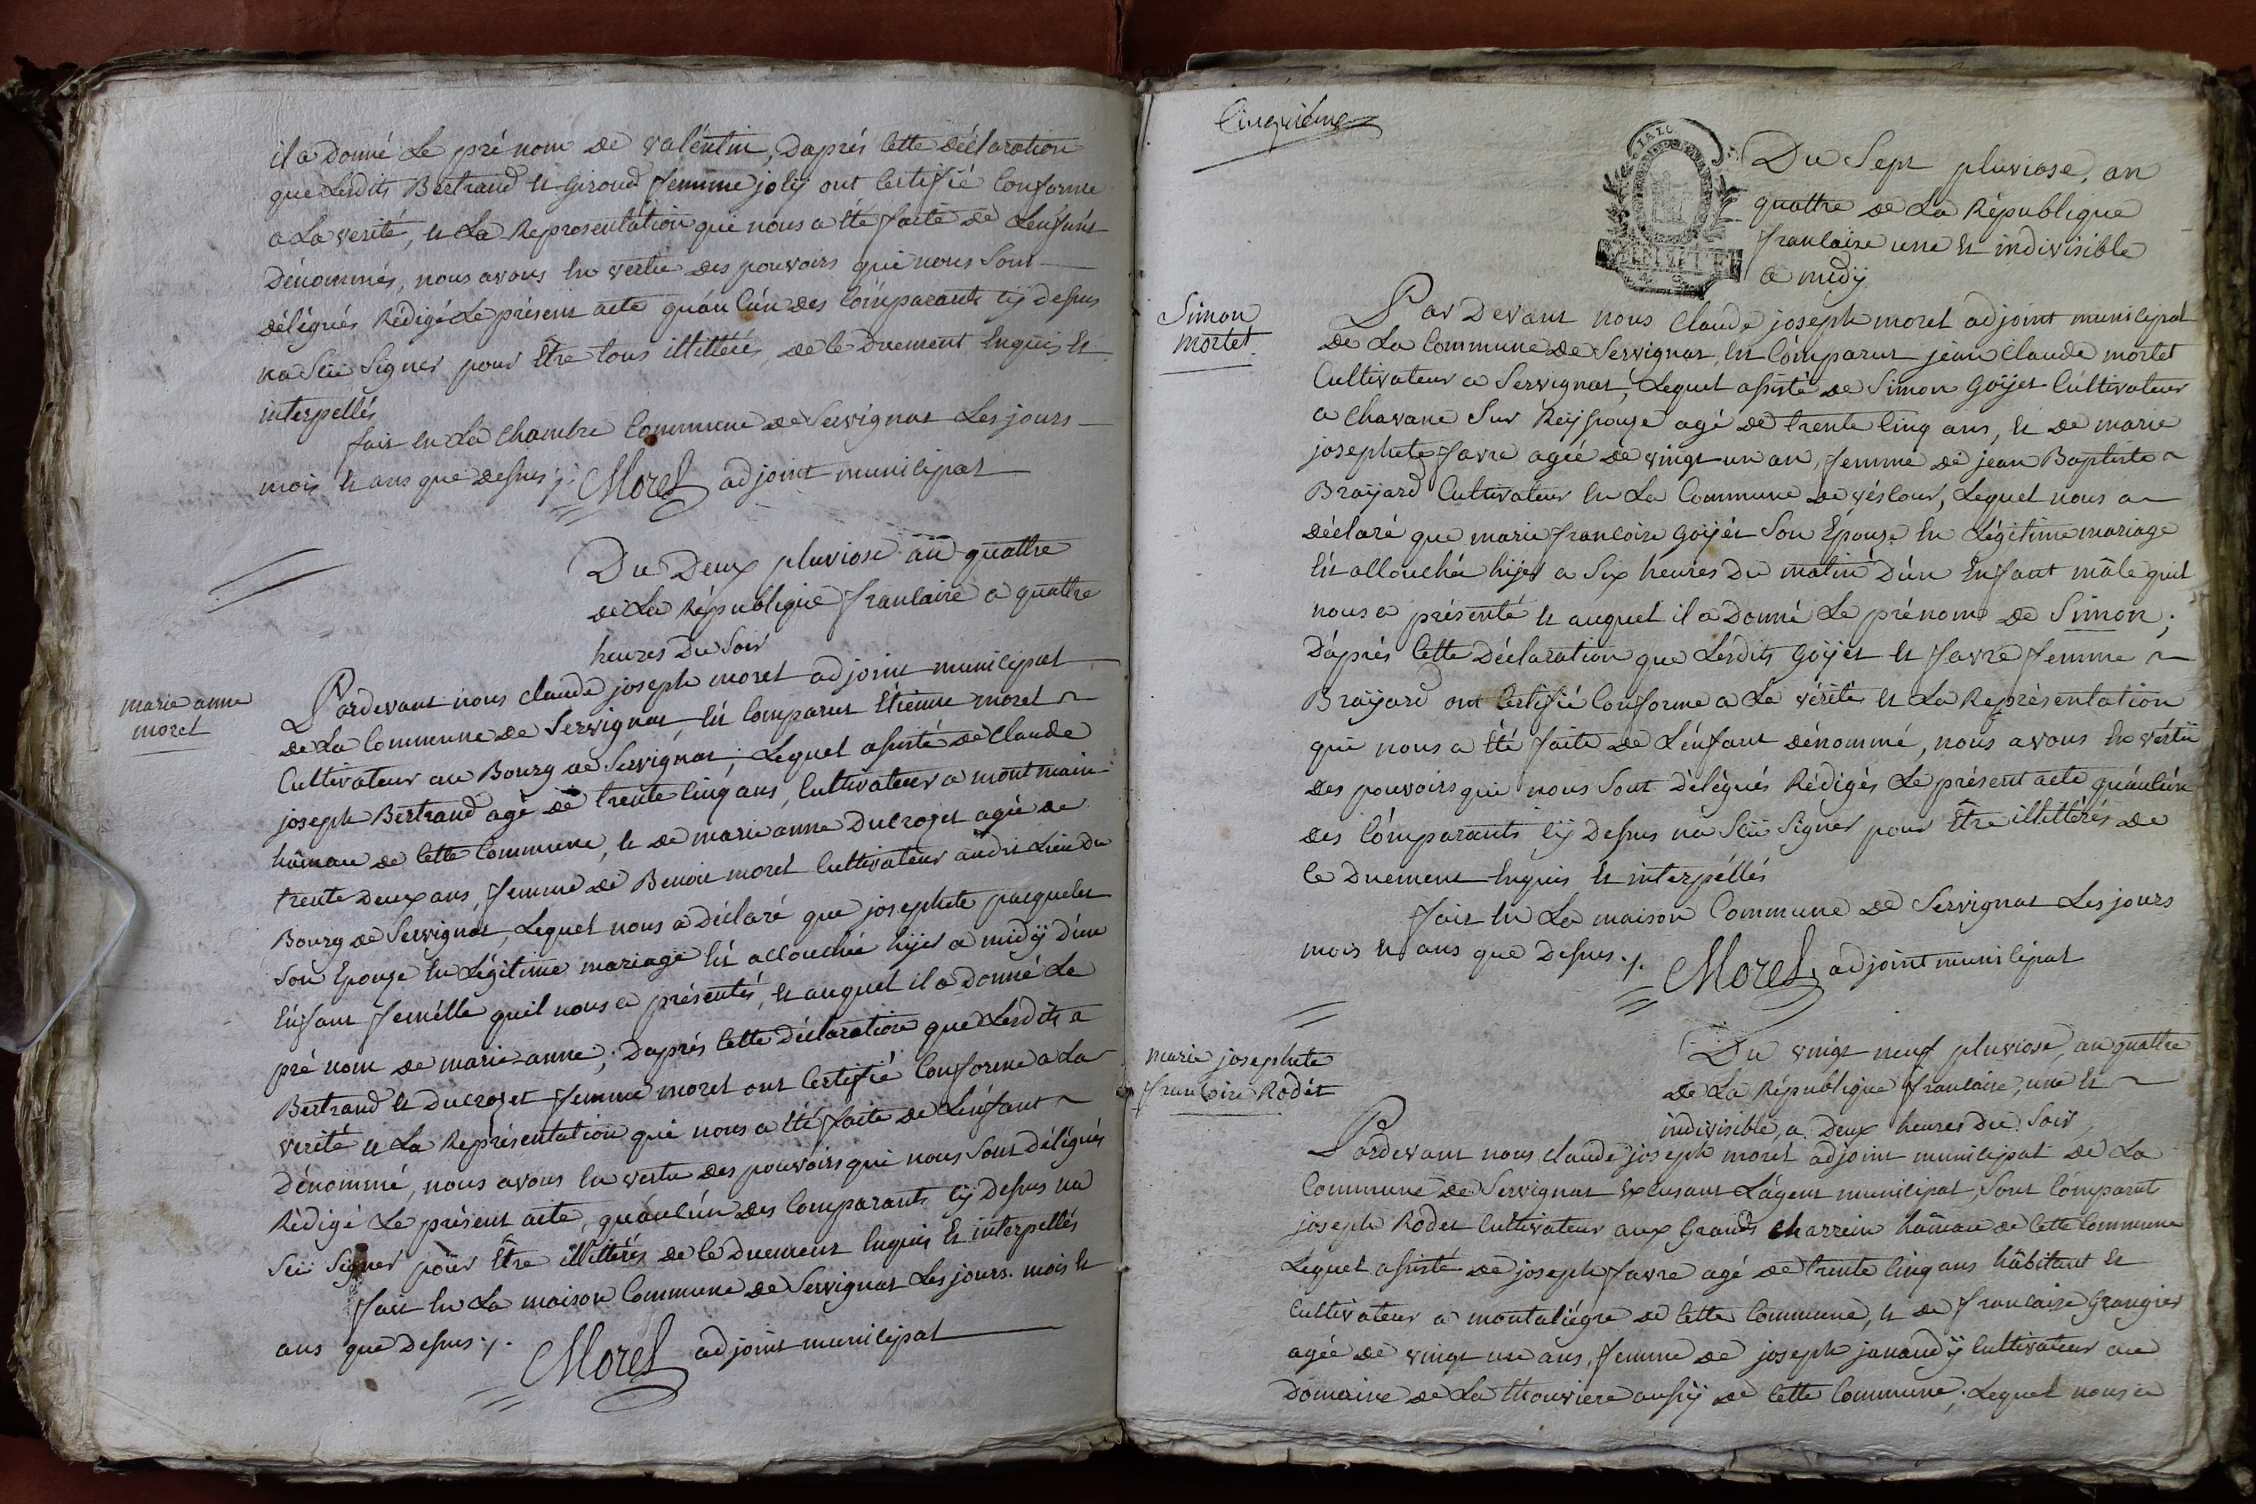 il a Donné Le pré nom de valéntin, Daprés Cette Déclaration
que Lesdits Bertrand et Giroud femme joly ont Certifié Conforme
a La verité, et La Representation qui nous a été faite de Lenfant
Dénommés, nous avons En vertu des pouvoirs qui nous sont
délégués Rédigé Le présent acte quáucún des Cómparants cÿ desus
na Sçu Signer pour Etre tous illittérés de ce Duement Enquis Et
interpellés
fait en La Chambre Commune de Servignat Les jours
mois et ans que desus ./. Morel adjoint municipal
Du Deux pluviose an quattre
de La République francaise a quattre
heures Du Soir
marie anne
morel
Pardevant nous claude joseph morel adjoint municipal
de La Commune de Servignat, Est Comparut Etienne morel
Cultivateur au Bourg de Servignat; Lequel assisté de Claude
joseph Bertrand agé de trente Cinq ans, Cultivateur a montmain
hâmau de Cette Commune, et de marie anne Ducrozet agée de
trente deux ans, femme de Benoit morel Cultivateur audit Lieu du
Bourg de Servignat, Lequel nous a déclaré que josephte pacquelet
Son Epouse En Légitime mariage Est accouchée hijer a midÿ d'un
Enfant femélle quil nous a présentés, et auquel il a donné Le
pré nom de marie anne; Daprés Cette déclaration que Lesdits
Bertrand et Ducrozet femme morel ont Certifié Conforme a La
verité et La Représentation qui nous a été faite de Lenfant
Dénommé, nous avons En vertu des pouvoirs qui nous Sont délégués
Rédigé Le présent acte, quáucún des Comparants cÿ desus na
Sçu Signer pour Etre illittérés de ce Duement Enquis Et interpellés
fait En La maison Commune de Servignat Les jours mois et
ans que desus ./. Morel adjoint municipal
Cinquième
Du Sept pluviose, an
quattre de La République
francaise une Et indivisible
a midÿ
Simon
mortel
Par Devant nous Claude joseph morel adjoint municipal
de La Commune de Servignat, Est Cómparut jean Claude mortel
Cultivateur a Servignat, Lequel assisté de Simon Goÿet Cultivateur
a Chavane Sur Reÿssouze agé de trente Cinq ans, Et de marie
josephte favre agée de vingt un an, femme de jean Baptiste
Braÿard Cultivateur En La Commune de véscour, Lequel nous a
déclaré que marie francoise Goÿét Son Epouse En Légitime mariage
Est accouchée hijer a Six heures Du matin D'un Enfant mâle quil
nous a présenté et auquel il a Donné Le prénom de Simon;
D'aprés Cette Déclaration que Lesdits Goÿét et favre femme
Braÿard ont Certifié Conforme a La vérité et La Représentation
qui nous a été faite de L'énfant dénommé, nous avons En vértu
des pouvoirs qui nous Sont délégués Rédigés Le présent acte quáucún
des Cómparants cÿ desus na Sçu Signer pour Etre illittérés de
ce Duement Enquis Et interpéllés
fait En La maison Commune de Servignat Les jours
mois et ans que desus ./. Morel adjoint municipal
marie josephte
francoise Rodét
Du vingt neuf pluviose, an quattre
de La République francaise, une Et
indivisible, a Deux heures du Soir
Pardevant nous claude joseph morél adjoint municipal de La
Commune de Servignat Excusant L'agent municipal, Sont Cómparut
joseph Rodet Cultivateur aux Grands Charrein hâmau de Cette Commune
Lequel assisté de joseph favre agé de trente Cinq ans hâbitant Et
Cultivateur a montaliégre de Cette Commune, et de francoise Grangier
agée de vingt un ans, femme de joseph janaudÿ Cultivateur au
Domaine de La thouviere aussÿ de Cette Commune, Lequel nous a